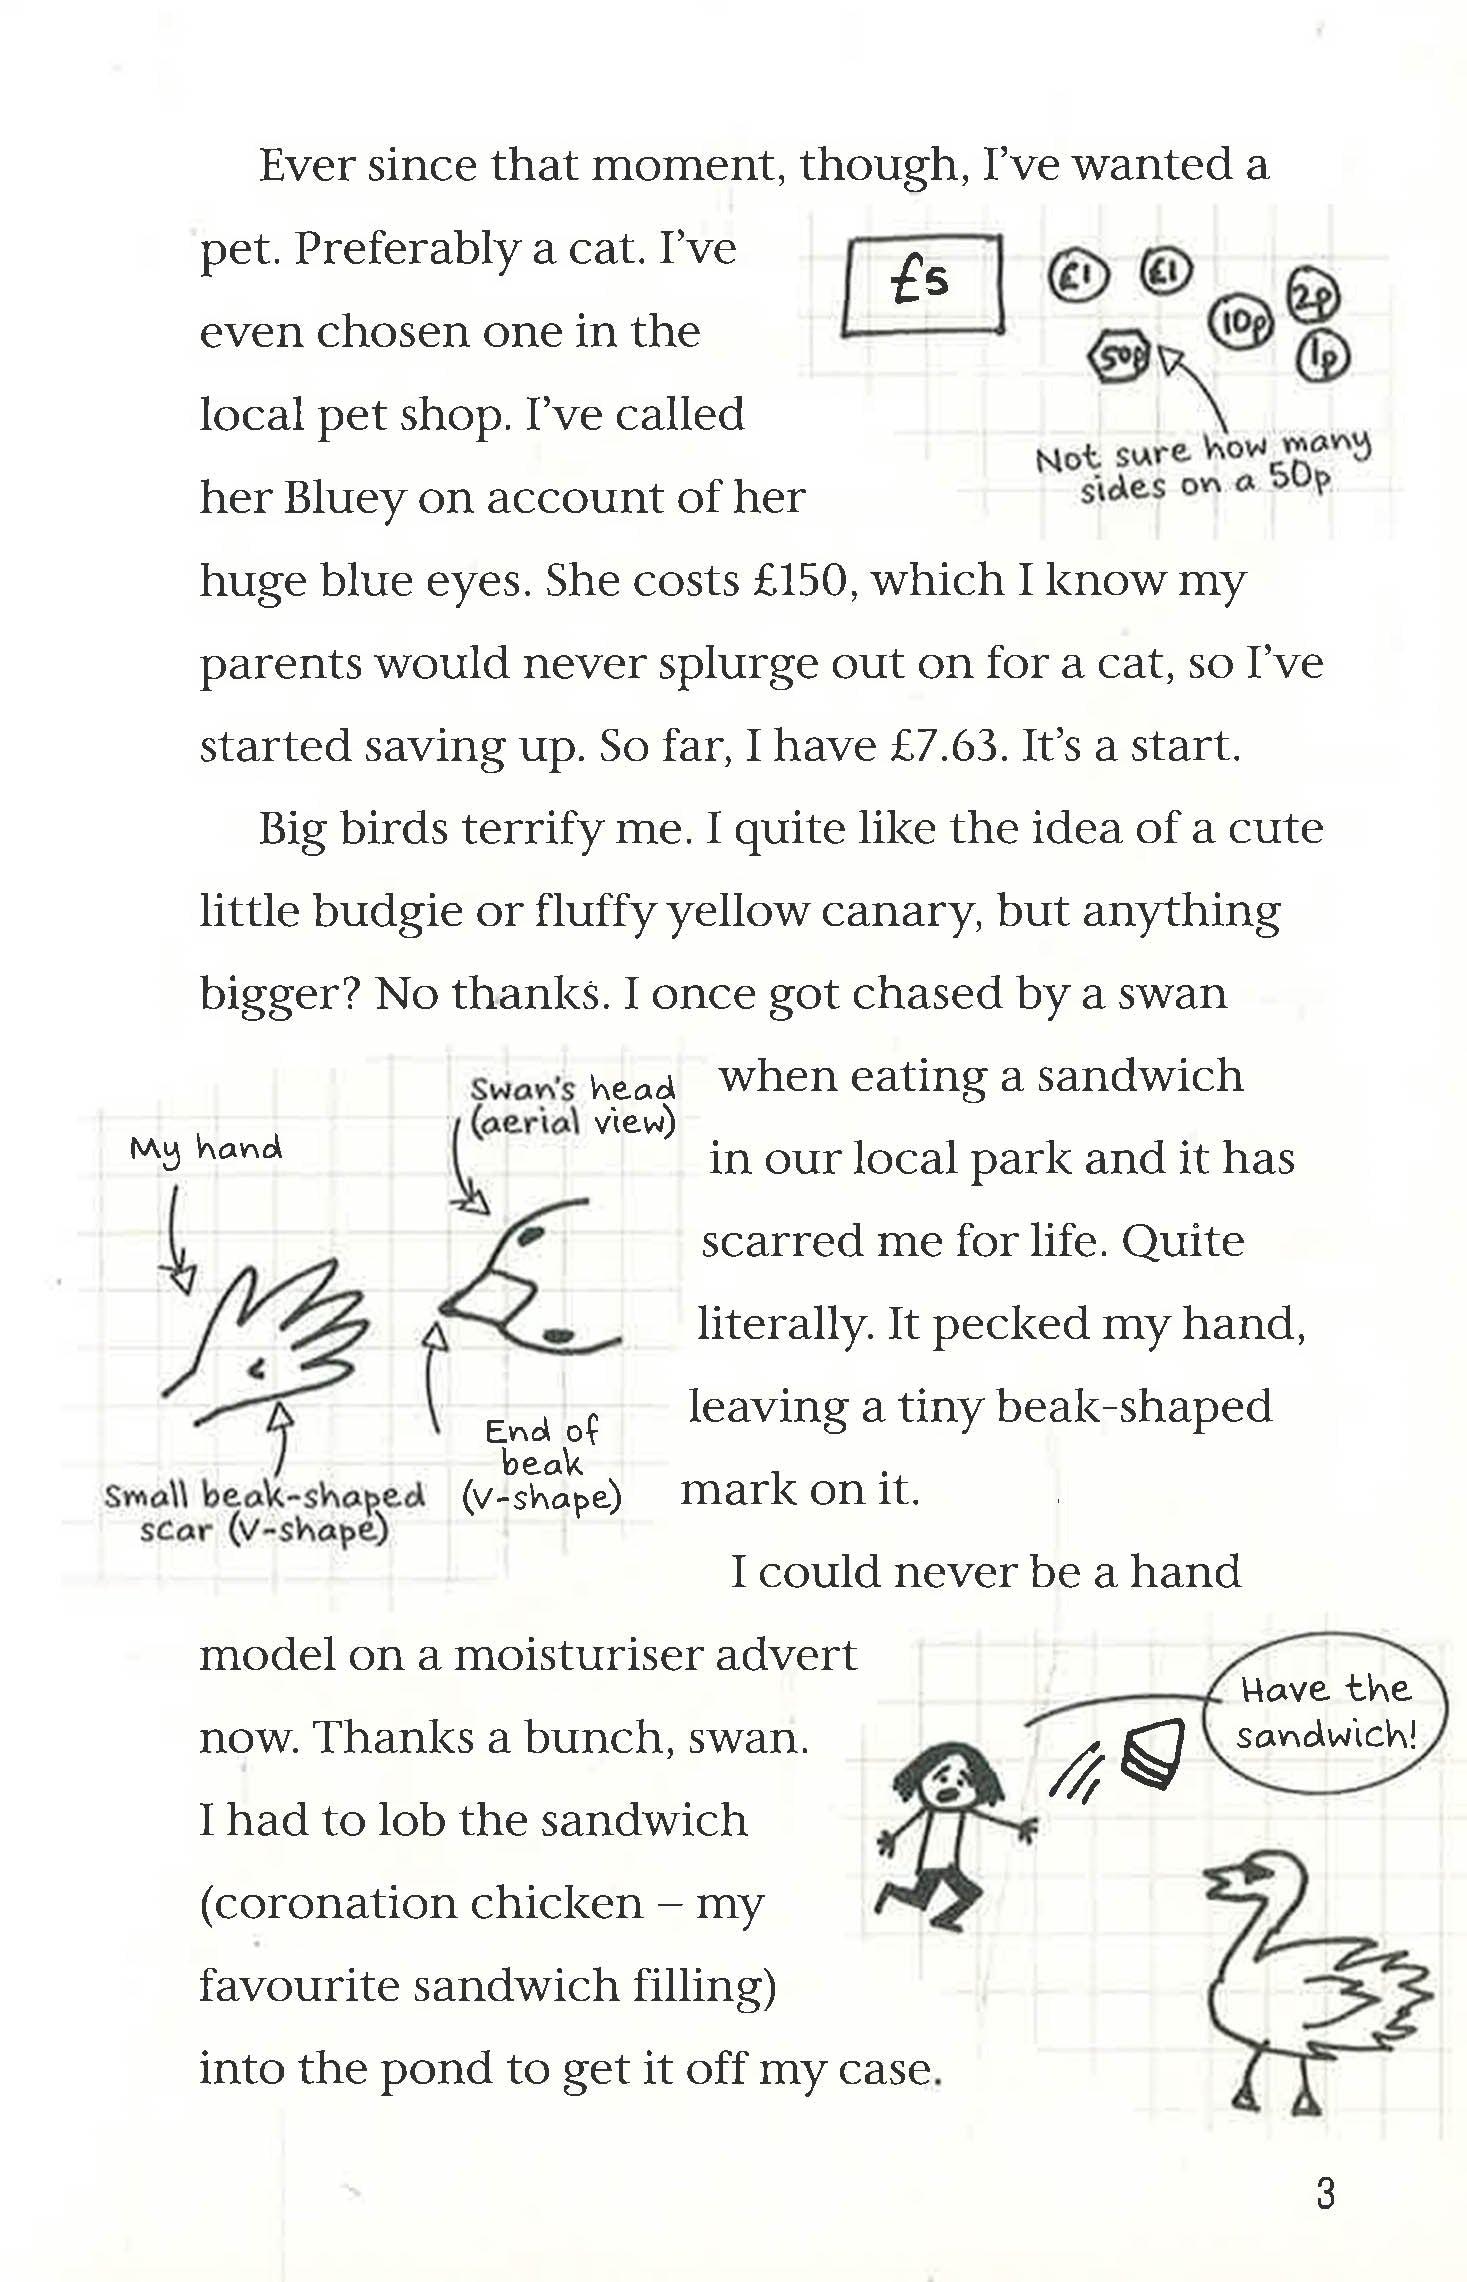 Ever since that moment, though, I've wanted a
pet. Preferably a cat. I've
even chosen one in the
local pet shop. I've called
her Bluey on account of her
£5
£1
£1
10p
2p
50p
1p
Not sure how many
sides on a 50p
huge blue eyes. She costs £150, which I know my
parents would never splurge out on for a cat, so I've
started saving up. So far, I have £7.63. It's a start.
Big birds terrify me. I quite like the idea of a cute
little budgie or fluffy yellow canary, but anything
bigger? No thanks. I once got chased by a swan
when eating a sandwich
in our local park and it has
scarred me for life. Quite
literally. It pecked my hand,
leaving a tiny beak-shaped
mark on it.
My hand
Swan's head
(aerial view)
End of
beak
(V-shape)
Small beak-shaped
scar (V-shape)
I could never be a hand
model on a moisturiser advert
now. Thanks a bunch, swan.
I had to lob the sandwich
(coronation chicken – my
favourite sandwich filling)
into the pond to get it off my case.
Have the
sandwich!
3